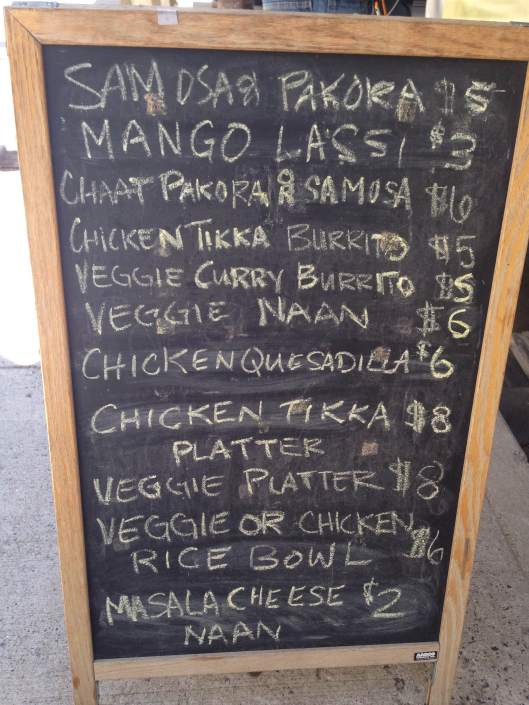 SAMOSA & PAKORA $5
MANGO LASSI $3
CHAAT PAKORA & SAMOSA $6
CHICKEN TIKKA BURRITO $5
VEGGIE CURRY BURRITO $5
VEGGIE NAAN $6
CHICKEN QUESADILLA $6
CHICKEN TIKKA $8
PLATTER
VEGGIE PLATTER $8
VEGGIE OR CHICKEN $6
RICE BOWL
MASALA CHEESE $2
NAAN